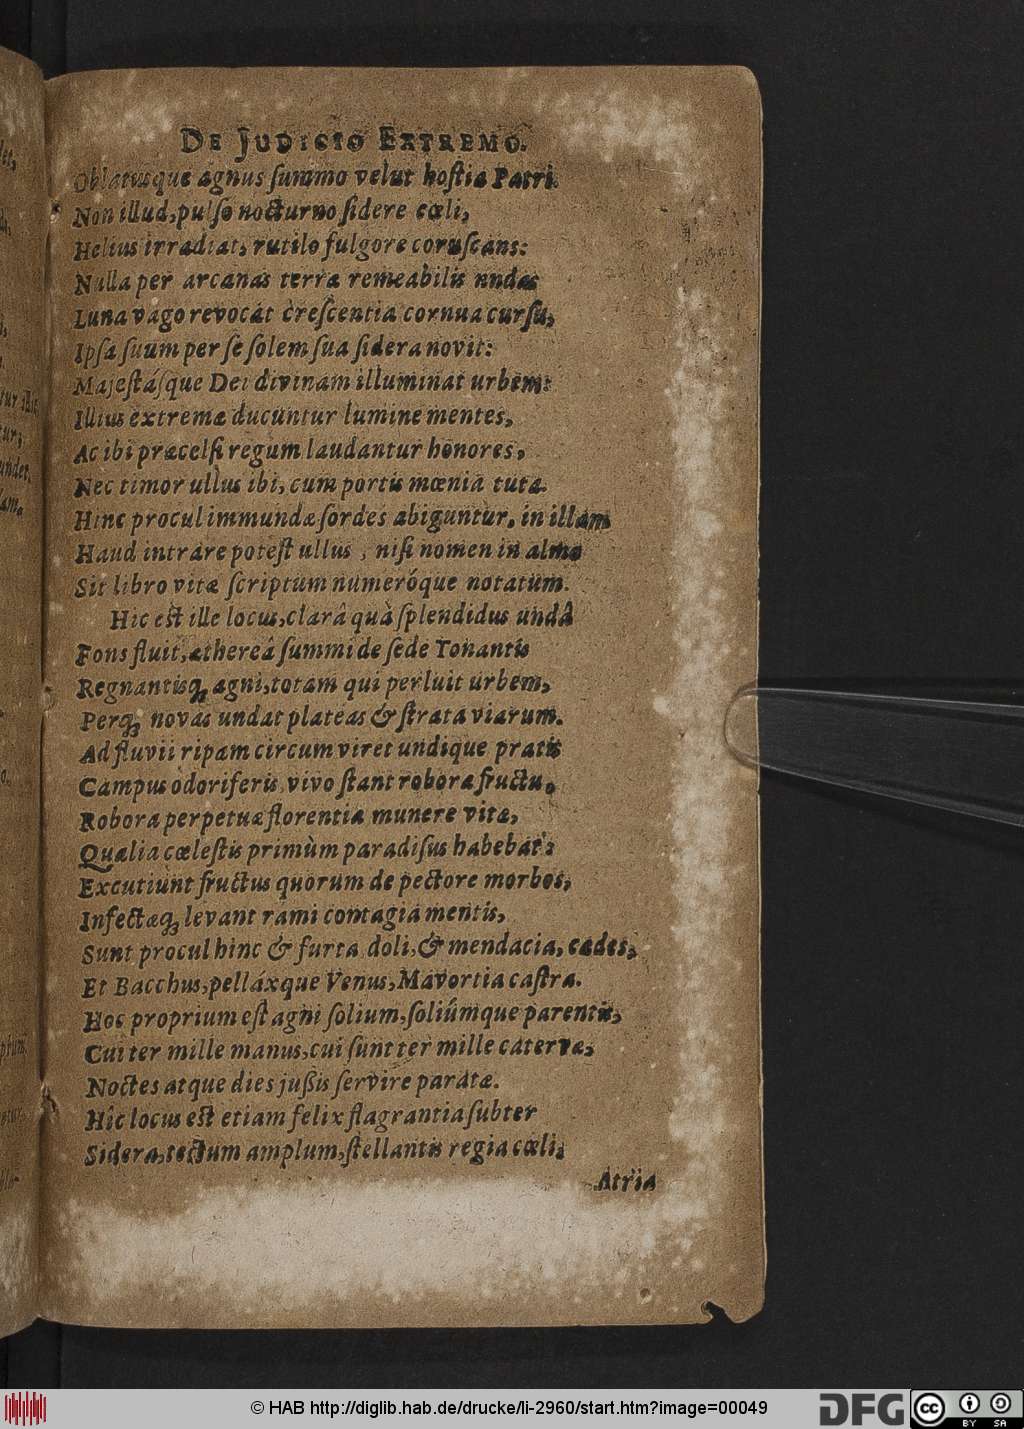 DE JUDICIO EXTREMO.
Oblatusque agnus summo velut hostia Patri.
Non illud, pulso nocturno sidere cœli,
Helius irradiat, rutilo fulgore coruscans:
Nulla per arcanas terra remeabilis undas
Luna vago revocat crescentia cornua cursu,
Ipsa suum per se solem sua sidera novit:
Majestásque Dei divinam illuminat urbem:
Illius extremæ ducuntur lumine mentes,
Ac ibi præcelsi regum laudantur honores,
Nec timor ullus ibi, cum portis mœnia tuta.
Hinc procul immundæ sordes abiguntur, in illam
Haud intrare potest ullus, nisi nomen in almo
Sit libro vitæ scriptum numeróque notatum.
Hic est ille locus, clarâ quà splendidus undâ
Fons fluit, æthereâ summi de sede Tonantis
Regnantisq; agni, totam qui perluit urbem,
Perq; novas undat plateas & strata viarum.
Ad fluvii ripam circum viret undique pratis
Campus odoriferis, vivo stant robora fructu,
Robora perpetuæ florentia munere vitæ,
Qualia cœlestis primùm paradisus habebat:
Excutiunt fructus quorum de pectore morbos,
Infectæq; levant rami contagia mentis,
Sunt procul hinc & furta doli, & mendacia, cædes,
Et Bacchus, pelláxque Venus, Mavortia castra.
Hoc proprium est agni solium, soliúmque parentis,
Cui ter mille manus, cui sunt ter mille catervæ,
Noctes atque dies jussis servire paratæ.
Hîc locus est etiam felix flagrantia subter
Sidera, tectum amplum, stellantis regia cœli,
Atria
© HAB http://diglib.hab.de/drucke/li-2960/start.htm?image=00049
DFG
cc BY SA